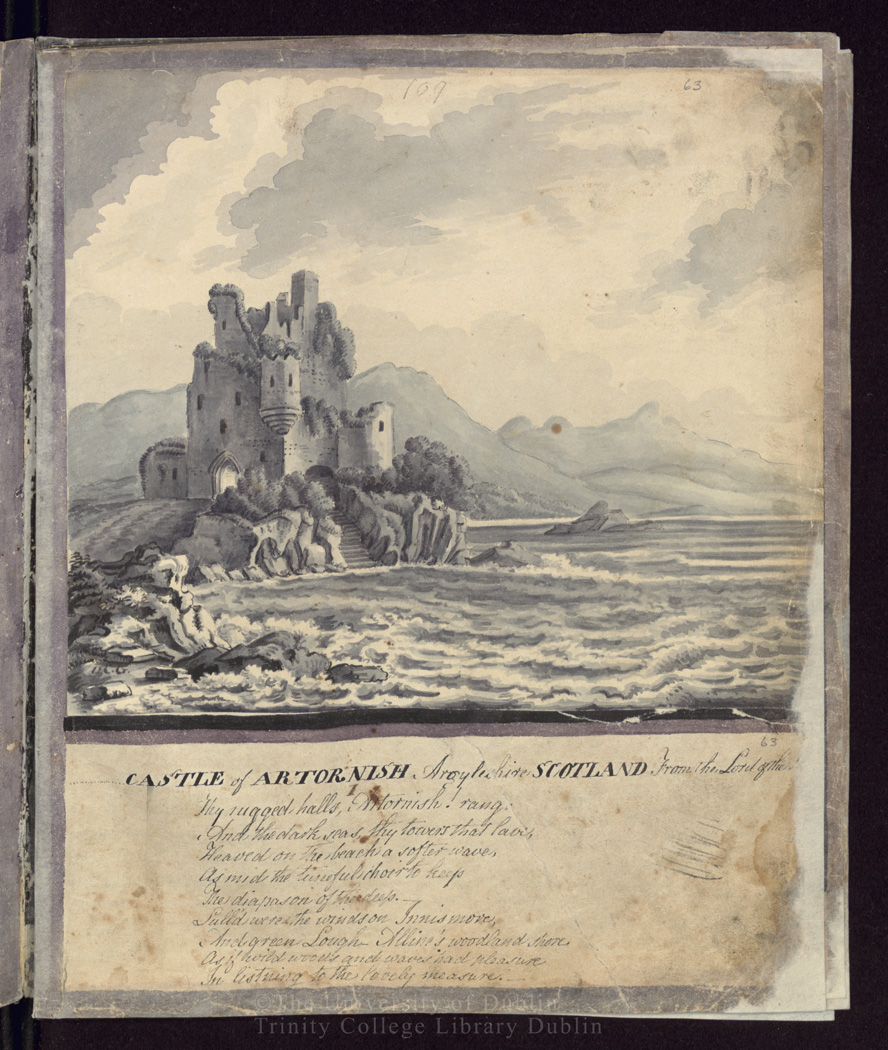 109
63
63
CASTLE of ARTORNISH Argyleshire SCOTLAND From the Lord of the
Thy rugged halls, Artornish! rang.
And the dark seas, thy towers that lave,
Heaved on the beach a softer wave,
As mid the tuneful choir to keep
The diapason of the deep.
Lull'd were the winds on Innismore,
And green Lough-Alline's woodland shore
As if wild woods and waves had pleasure
In listning to the lovely measure.
©The University of Dublin
Trinity College Library Dublin